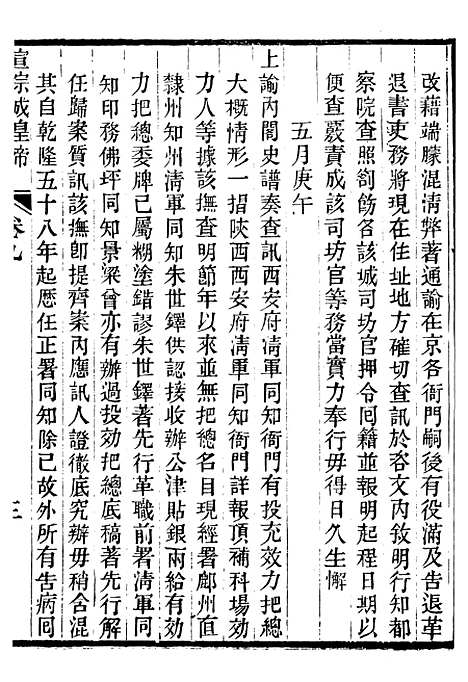 改藉端朦混清弊著通諭在京各衙門嗣後有役滿及告退革
退書吏務將現在住址地方確切查訊於咨文內敘明行知都
察院查照劄飭各該城司坊官押令回籍並報明起程日期以
便查覈責成該司坊官等務當實力奉行毋得日久生懈
五月庚午
上諭內閣史譜奏查訊西安府清軍同知衙門有投充效力把總
大概情形一摺陝西西安府清軍同知衙門詳報頂補科場効
力人等據該撫查明節年以來並無把總名目現經署鄜州直
隸州知州清軍同知朱世鐸供認接收辦公津貼銀兩給有効
力把總委牌已屬糊塗錯謬朱世鐸著先行革職前署清軍同
知印務佛坪同知景梁曾亦有辦過投効把總底稿著先行解
任歸案質訊該撫卽提齊案內應訊人證徹底究辦毋稍含混
其自乾隆五十八年起歷任正署同知除已故外所有告病回
宣宗成皇帝
卷九
三